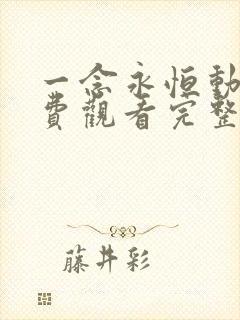 一念永恒動
費觀看完整
藤井彩